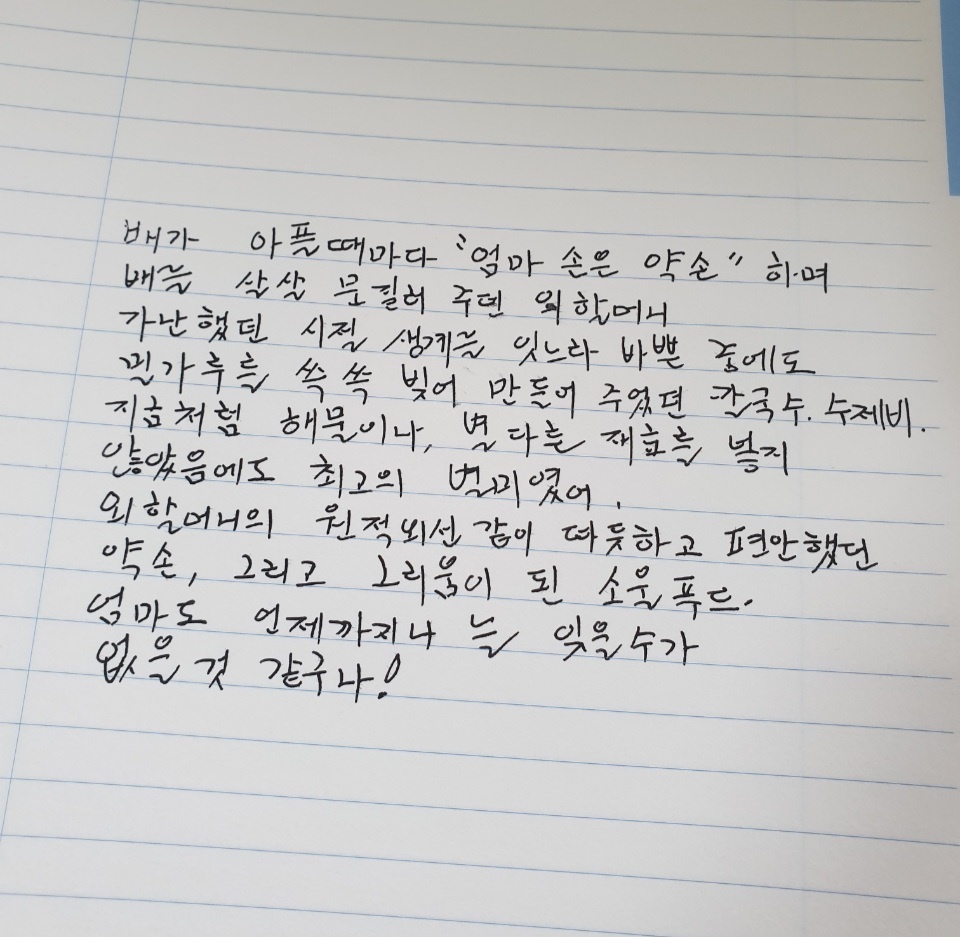 배가 아플때마다 "엄마 손은 약손" 하며
배를 살살 문질러 주던 외할머니
가난했던 시절 생계를 잇느라 바쁜 중에도
밀가루를 쓱쓱 빚어 만들어 주었던 칼국수. 수제비.
지금처럼 해물이나, 별다른 재료를 넣지
않았음에도 최고의 별미였어.
외할머니의 원적외선같이 따듯하고 편안했던
약손, 그리고 그리움이 된 소울푸드.
엄마도 언제까지나 늘 잊을수가
없을것 같구나!